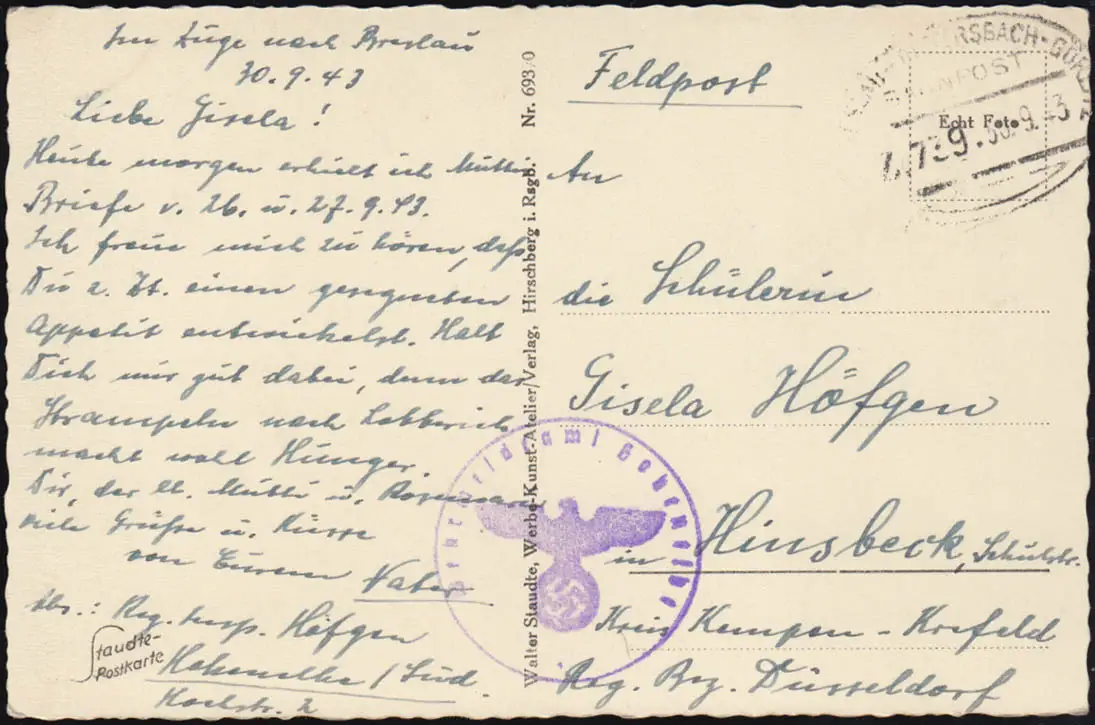 Im Zuge nach Breslau
30.9.43
Liebe Gisela!
Heute morgen erhielt ich Muttis
Briefe v. 26. u. 27.9.43.
Ich freue mich zu hören, daß
Du z. Zt. einen gesegneten
Appetit entwickelst. Halt
Dich nur gut dabei, denn das
Strampeln nach Lobberich
macht wohl Hunger.
Dir, der lb. Mutti u. Rosemarie
viele Grüße u. Küsse
von Eurem Vater
Abs.: Reg. Insp. Höfgen
Hohenelbe / Sud.
Kochstr. 2
Staudte-
Postkarte
Walter Staudte, Werbe-Kunst-Atelier/Verlag, Hirschberg i. Rsgb. Nr. 693/0
Feldpost
An
die Schülerin
Gisela Höfgen
in Hinsbeck, Schulstr.
Kreis Kempen-Krefeld
Reg. Bez. Düsseldorf
Echt Foto
BAHNPOST
30.9.43
Hohenelbe